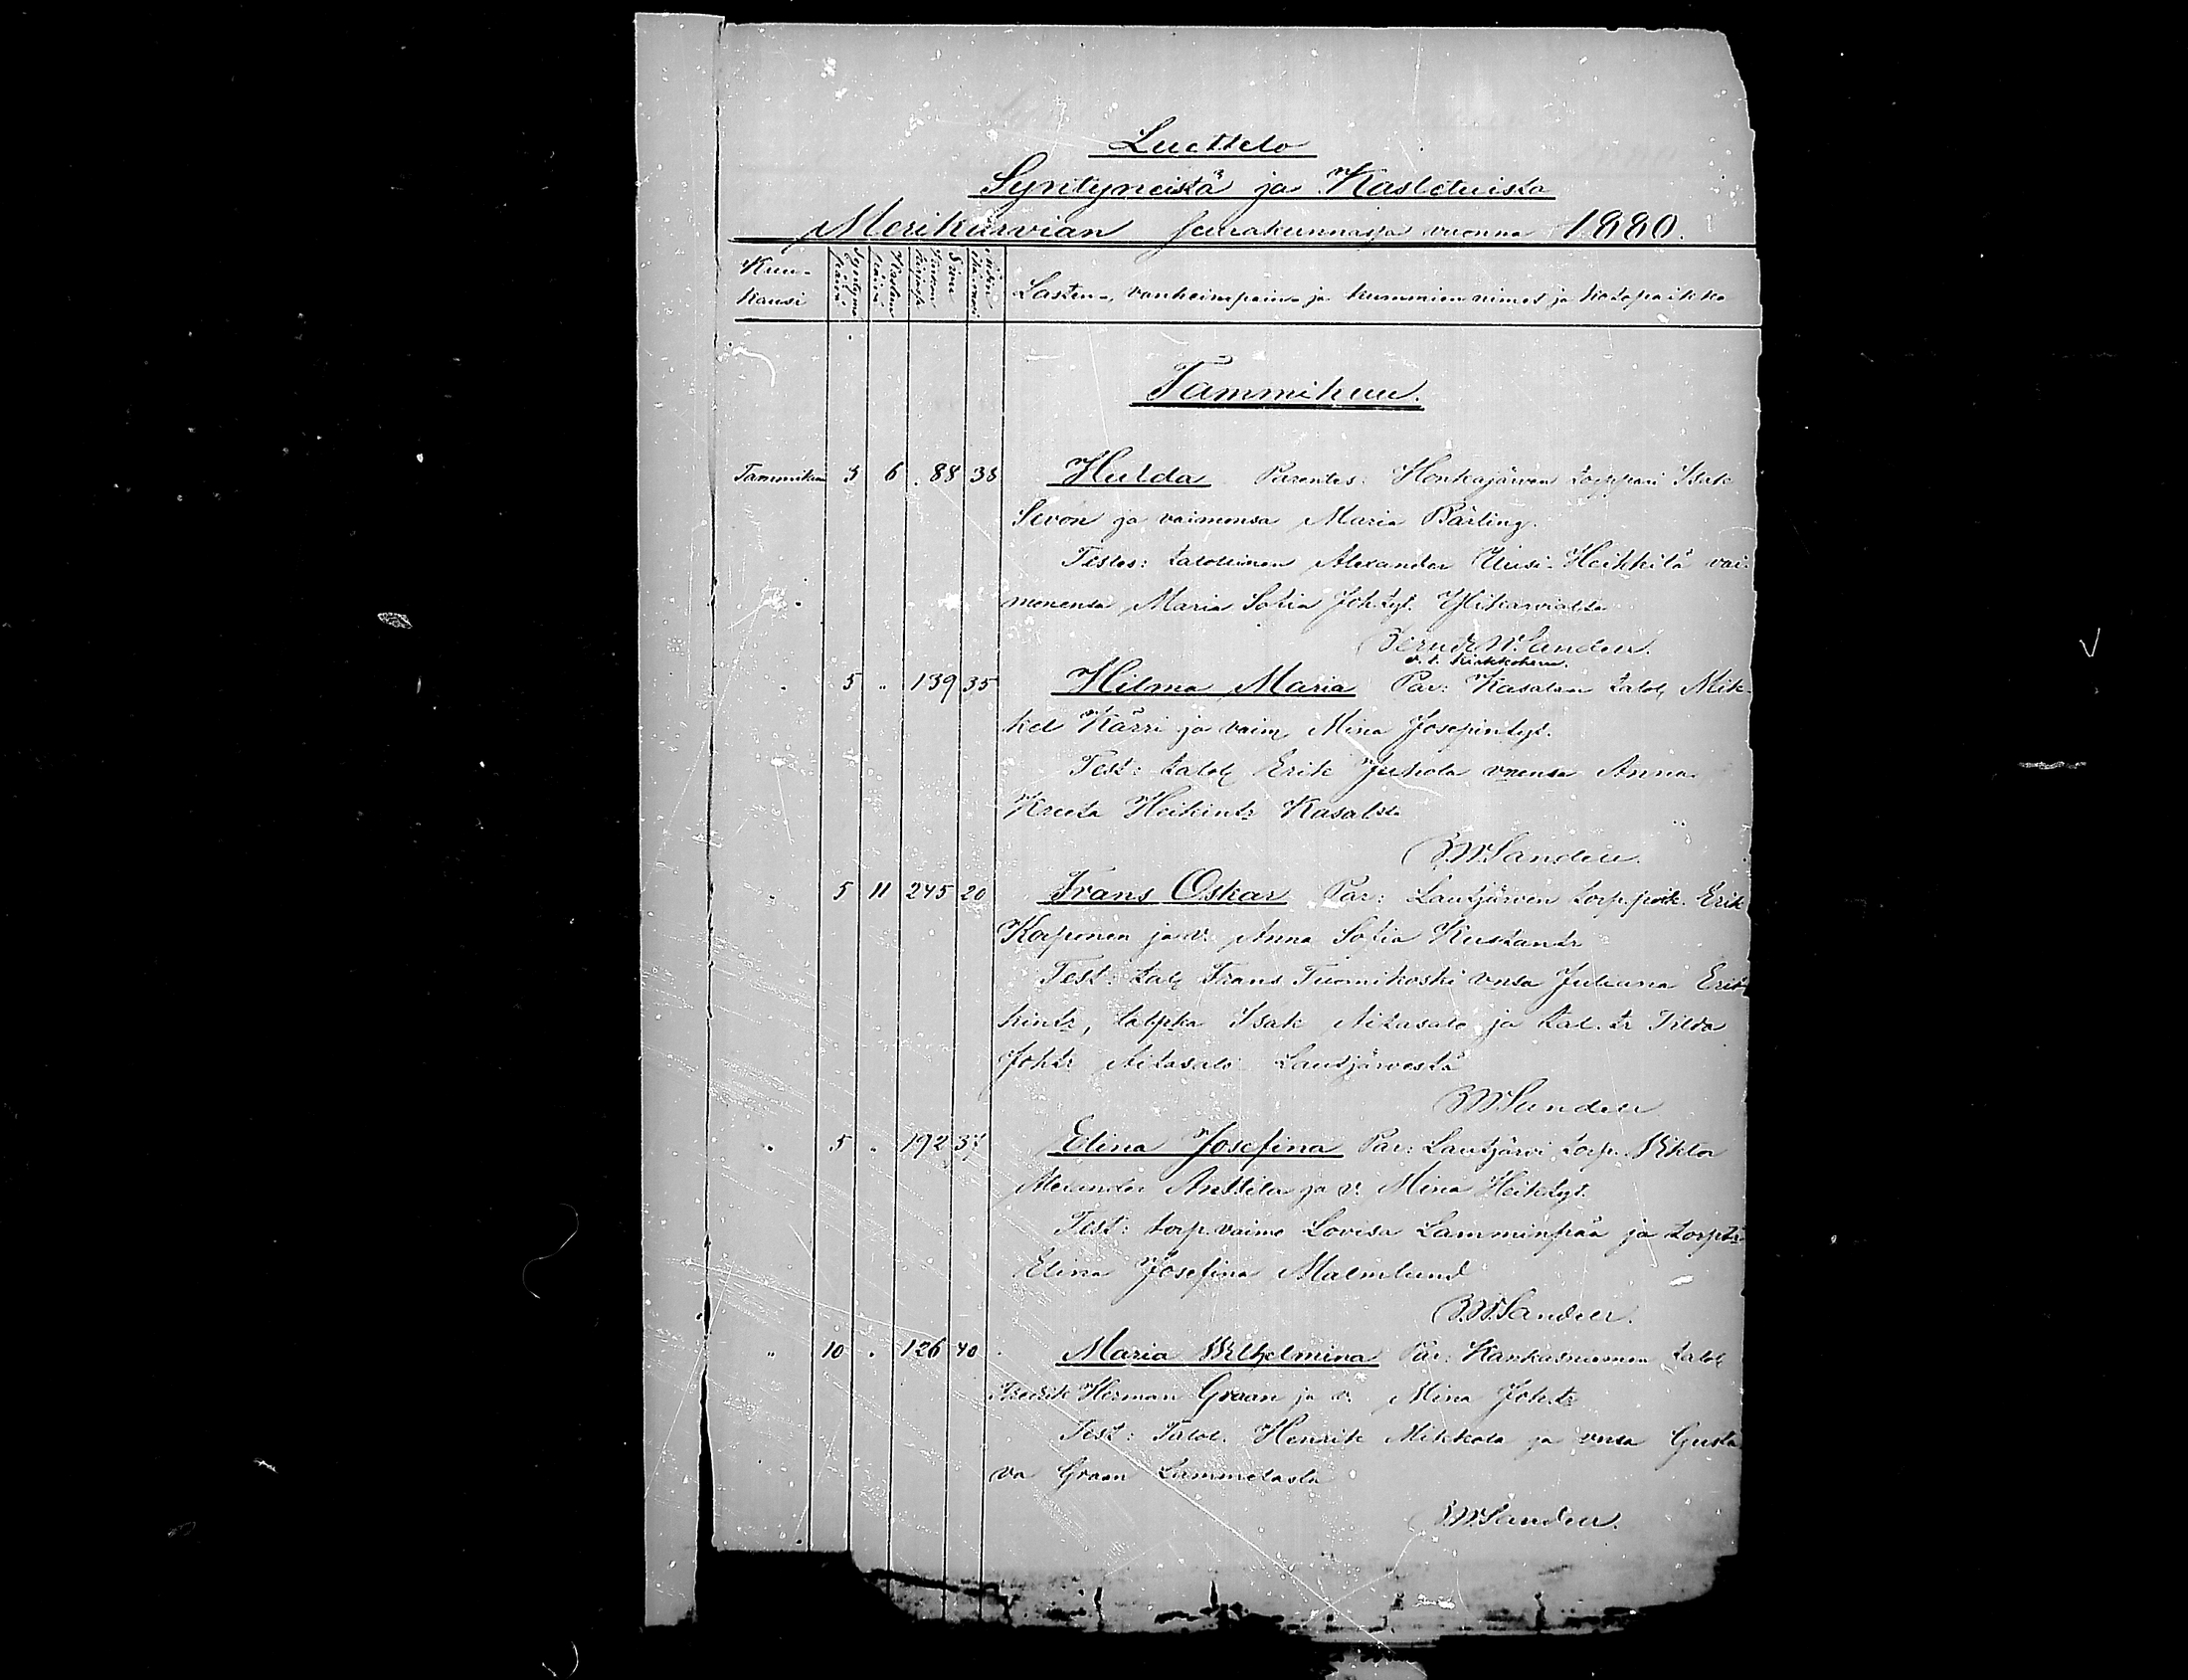 Luettelo
Syntyneistä ja Kastetuista
Merikarvian seurakunnassa vuonna 1880.
Kuu-
kausi
Syntymä
päivä
Kasteen
päivä
Sivu
Äidin
ikävuosi
Lasten, vanhempain ja kummien nimet ja kotopaikka
Tammikuu.
Tammikuu 3 6 88 38 Hulda Parentes: Honkajärven torppari Isak
Sevon ja vaimonsa Maria Bärling.
Testes: talollinen Alexander Uusi-Heikkilä vai-
monensa Maria Sofia Joh.tyt. Ylikarvialta
Bernh W. Sandell.
v. t. kirkkoherra.
" 5 " 139 35 Hilma Maria Par: Kasalan talol Mik-
kel Kärri ja vaim Mina Josefintyt.
Test: talol Erik Juhola vnensa Anna
Kreeta Heikintr Kasalsta
B.W.Sandell.
" 5 11 245 20 Frans Oskar Par: Lautjärven torp.poik. Erik
Korponen ja v. Anna Sofia Kustantr
Test: tal Frans Tuomikoski vnsa Juliana Erik-
kintr, talpka Isak Aitasalo ja tal. tr Tilda
Johtr Aitasalo Lautjärvestä
BWSandell
" 5 " 192 37 Elina Josefina Par: Lautjärvi torp. Viktor
Alexander Anttila ja v. Mina Heiktyt.
Test: torp.vaimo Lovisa Lamminpää ja torptr
Elina Josefina Malmlund
B.W.Sandell.
" 10 " 126 40 Maria Wilhelmina Par: Kankasniemen talol
Fredrik Herman Graan ja v. Mina Joh.tr
Test: Talol. Henrik Mikkola ja vnsa Gusta
va Graan Lammelasta
B.W.Sandell.